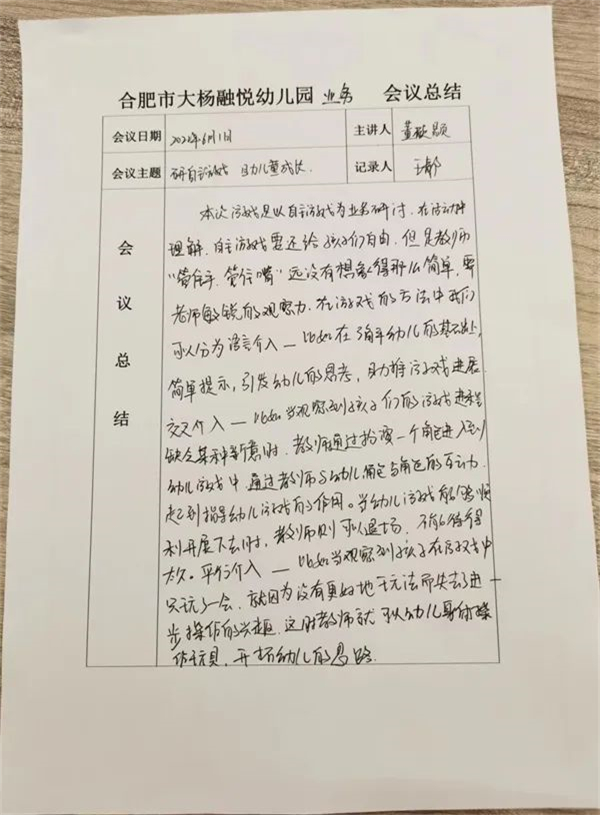 合肥市大杨融悦幼儿园 业务 会议总结
会议日期 2022年6月1日 主讲人
会议主题 研自主游戏 助儿童成长. 记录人 王
会议总结
本次游戏是以自主游戏为业务研讨. 在活动中
理解. 自主游戏要还给孩子们自由. 但是教师
“管住手. 管住嘴”远没有想象得那么简单, 要
老师敏锐的观察力. 在游戏的方法中我们
可以分为语言介入 — 比如在了解幼儿的基础上,
简单提示, 引发幼儿的思考, 助推游戏进展.
交叉介入 — 比如当观察到孩子们的游戏进程
缺乏某种新意时. 教师通过扮演一个角色进入到
幼儿游戏中 通过教师与幼儿角色与角色的互动.
起到指导幼儿游戏的作用. 当幼儿游戏能够顺
利开展下去时, 教师则可以退场. 不必待得
太久. 平行介入 — 比如当观察到孩子在游戏中
只玩了一会. 就因为没有更好地玩法而失去了进一
步操作的兴趣. 这时教师就可以幼儿身旁操
作玩具, 开拓幼儿的思路.